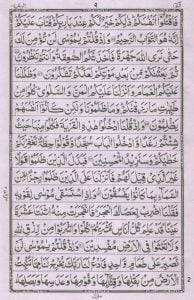 ٩
فَاقْتُلُوْٓا اَنْفُسَكُمْ ذٰلِكُمْ خَيْرٌ لَّكُمْ عِنْدَ بَارِئِكُمْ فَتَابَ عَلَيْكُمْ
اِنَّهٗ هُوَ التَّوَّابُ الرَّحِيْمُ وَاِذْ قُلْتُمْ يٰمُوْسٰى لَنْ نُّؤْمِنَ لَكَ
حَتّٰى نَرَى اللّٰهَ جَهْرَةً فَاَخَذَتْكُمُ الصّٰعِقَةُ وَاَنْتُمْ تَنْظُرُوْنَ
ثُمَّ بَعَثْنٰكُمْ مِّنْۢ بَعْدِ مَوْتِكُمْ لَعَلَّكُمْ تَشْكُرُوْنَ وَظَلَّلْنَا
عَلَيْكُمُ الْغَمَامَ وَاَنْزَلْنَا عَلَيْكُمُ الْمَنَّ وَالسَّلْوٰى كُلُوْا مِنْ
طَيِّبٰتِ مَا رَزَقْنٰكُمْ وَمَا ظَلَمُوْنَا وَلٰكِنْ كَانُوْٓا اَنْفُسَهُمْ
يَظْلِمُوْنَ وَاِذْ قُلْنَا ادْخُلُوْا هٰذِهِ الْقَرْيَةَ فَكُلُوْا مِنْهَا حَيْثُ
شِئْتُمْ رَغَدًا وَّادْخُلُوا الْبَابَ سُجَّدًا وَّقُوْلُوْا حِطَّةٌ نَّغْفِرْ لَكُمْ
خَطٰيٰكُمْ وَسَنَزِيْدُ الْمُحْسِنِيْنَ فَبَدَّلَ الَّذِيْنَ ظَلَمُوْا قَوْلًا
غَيْرَ الَّذِيْ قِيْلَ لَهُمْ فَاَنْزَلْنَا عَلَى الَّذِيْنَ ظَلَمُوْا رِجْزًا مِّنَ
السَّمَآءِ بِمَا كَانُوْا يَفْسُقُوْنَ وَاِذِ اسْتَسْقٰى مُوْسٰى لِقَوْمِهٖ
فَقُلْنَا اضْرِبْ بِّعَصَاكَ الْحَجَرَ فَانْفَجَرَتْ مِنْهُ اثْنَتَا عَشْرَةَ
عَيْنًا قَدْ عَلِمَ كُلُّ اُنَاسٍ مَّشْرَبَهُمْ كُلُوْا وَاشْرَبُوْا مِنْ رِّزْقِ اللّٰهِ
وَلَا تَعْثَوْا فِى الْاَرْضِ مُفْسِدِيْنَ وَاِذْ قُلْتُمْ يٰمُوْسٰى لَنْ
نَّصْبِرَ عَلٰى طَعَامٍ وَّاحِدٍ فَادْعُ لَنَا رَبَّكَ يُخْرِجْ لَنَا مِمَّا تُنْۢبِتُ
الْاَرْضُ مِنْۢ بَقْلِهَا وَقِثَّآئِهَا وَفُوْمِهَا وَعَدَسِهَا وَبَصَلِهَا